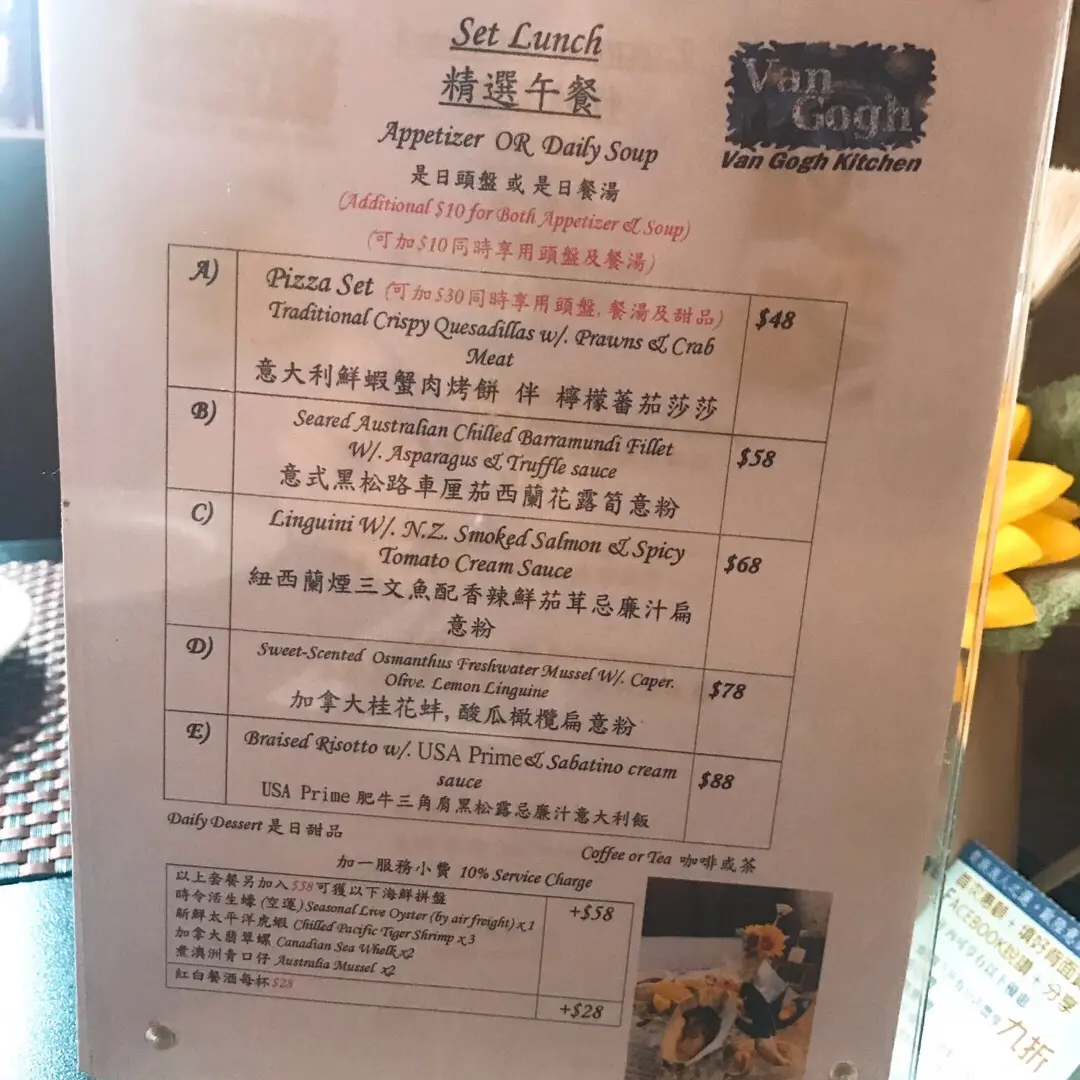 Set Lunch
精選午餐
Van
Gogh
Van Gogh Kitchen
Appetizer OR Daily Soup
是日頭盤 或 是日餐湯
(Additional $10 for Both Appetizer & Soup)
(可加$10同時享用頭盤及餐湯)
A)
Pizza Set (可加$30同時享用頭盤, 餐湯及甜品)
Traditional Crispy Quesadillas w/. Prawns & Crab
Meat
意大利鮮蝦蟹肉烤餅 伴 檸檬蕃茄莎莎
$48
B)
Seared Australian Chilled Barramundi Fillet
W/. Asparagus & Truffle sauce
意式黑松路車厘茄西蘭花露筍意粉
$58
C)
Linguini W/. N.Z. Smoked Salmon & Spicy
Tomato Cream Sauce
紐西蘭煙三文魚配香辣鮮茄茸忌廉汁扁
意粉
$68
D)
Sweet-Scented Osmanthus Freshwater Mussel W/. Caper.
Olive. Lemon Linguine
加拿大桂花蚌, 酸瓜橄欖扁意粉
$78
E)
Braised Risotto w/. USA Prime & Sabatino cream
sauce
USA Prime 肥牛三角肩黑松露忌廉汁意大利飯
$88
Daily Dessert 是日甜品
Coffee or Tea 咖啡或茶
加一服務小費 10% Service Charge
以上套餐另加入$58可獲以下海鮮拼盤
時令活生蠔 (空運) Seasonal Live Oyster (by air freight) x1
新鮮太平洋虎蝦 Chilled Pacific Tiger Shrimp x3
加拿大翡翠螺 Canadian Sea Whelk x2
煮澳洲青口仔 Australia Mussel x2
+$58
紅白餐酒每杯$28
+$28
FACEBOOK
分享
九折